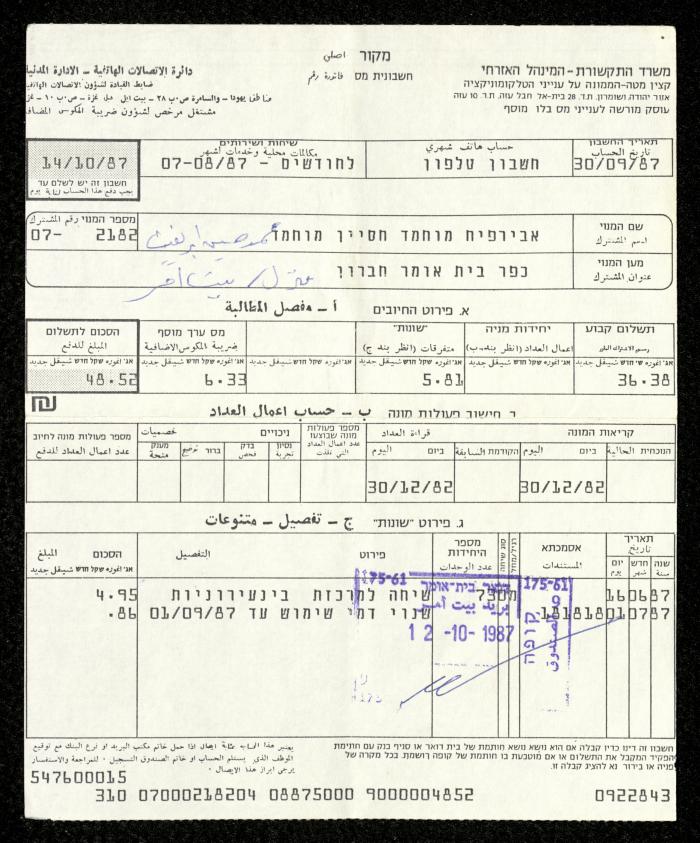 מקור اصلي
משרד התקשורת - המינהל האזרחי
חשבונית מס فاتورة رقم
دائرة الاتصالات الهاتفية - الادارة المدنية
קצין מטה-הממונה על ענייני הטלקומוניקציה
ضابط القيادة لشؤون الاتصالات الهاتفية
אזור יהודה ושומרון, ת.ד. 28 בית-אל חבל עזה, ת.ד. 10 עזה
עוסק מורשה לענייני מס בלו מוסף
مشتغل مرخص لشؤون ضريبة المكوس المضافة
תאריך החשבון
تاريخ الحساب
30/09/87
حساب هاتف شهري
חשבון טלפון
שיחות ושירותים
مكالمات محلية وخدمات لشهر
לחודשים - 07-08/87
14/10/87
חשבון זה יש לשלם עד
يجب دفع هذا الحساب لغاية يوم
שם המנוי
اسم المشترك
אבירפיח מוחמד חסיין מוחמד
מספר המנוי رقم المشترك
07- 2182
מען המנוי
عنوان المشترك
כפר בית אומר חברון
منزل / بيت امر
א. פירוט החיובים أ - مفصل المطالبة
תשלום קבוע
رسم الاشتراك المقرر
אג' اغوره שקל חדש شيقل جديد
36.38
יחידות מניה
اعمال العداد (انظر بند ب)
אג' اغوره שקל חדש شيقل جديد
"שונות"
متفرقات (انظر بند ج)
אג' اغوره שקל חדש شيقل جديد
5.81
מס ערך מוסף
ضريبة المكوس الاضافية
אג' اغوره שקל חדש شيقل جديد
6.33
הסכום לתשלום
المبلغ للدفع
אג' اغوره שקל חדש شيقل جديد
48.52
₪
ב חישוב פעולות מונה ب - حساب اعمال العداد
קריאות המונה قراءة العداد
הנוכחית الحالية ביום اليوم
הקודמת السابقة ביום اليوم
30/12/82
30/12/82
מספר פעולות מונה שבוצעו
عدد اعمال العداد التي نفذت
ניכויים خصميات
נסיון تجربة
בדק فحص
ברור توضيح
מענק منحة
מספר פעולות מונה לחיוב
عدد اعمال العداد للدفع
ג. פירוט "שונות" ج - تفصيل - متنوعات
תאריך تاريخ
שנה سنة חדש شهر יום يوم
אסמכתא
المستندات
סוג שיחה
רגיל/מוזל
מספר היחידות
عدد الوحدات
פירוט التفصيل
הסכום المبلغ
אג' اغوره שקל חדש شيقل جديد
160687 730מ שיחה למרכזת בינעירוניות 4.95
010787 181818 שנוי דמי שימוש עד 01/09/87 .86
175-61
דואר בית-אומר
بريد بيت امر
12 -10- 1987
175-61
קופה
الصندوق
חשבון זה דינו כדין קבלה אם הוא נושא נושא חותמת של בית דואר או סניף בנק עם חתימת
הפקיד המקבל את התשלום או אם מוטבעת בו חותמת של קופה רושמת. בכל מקרה של
פניה או בירור נא להציג קבלה זו.
يعتبر هذا الحساب بمثابة ايصال اذا حمل خاتم مكتب البريد او فرع البنك مع توقيع
الموظف الذي يستلم الحساب او خاتم الصندوق التسجيل. للمراجعة والاستفسار
يرجى ابراز هذا الايصال.
547600015
310 07000218204 08875000 9000004852 0922843